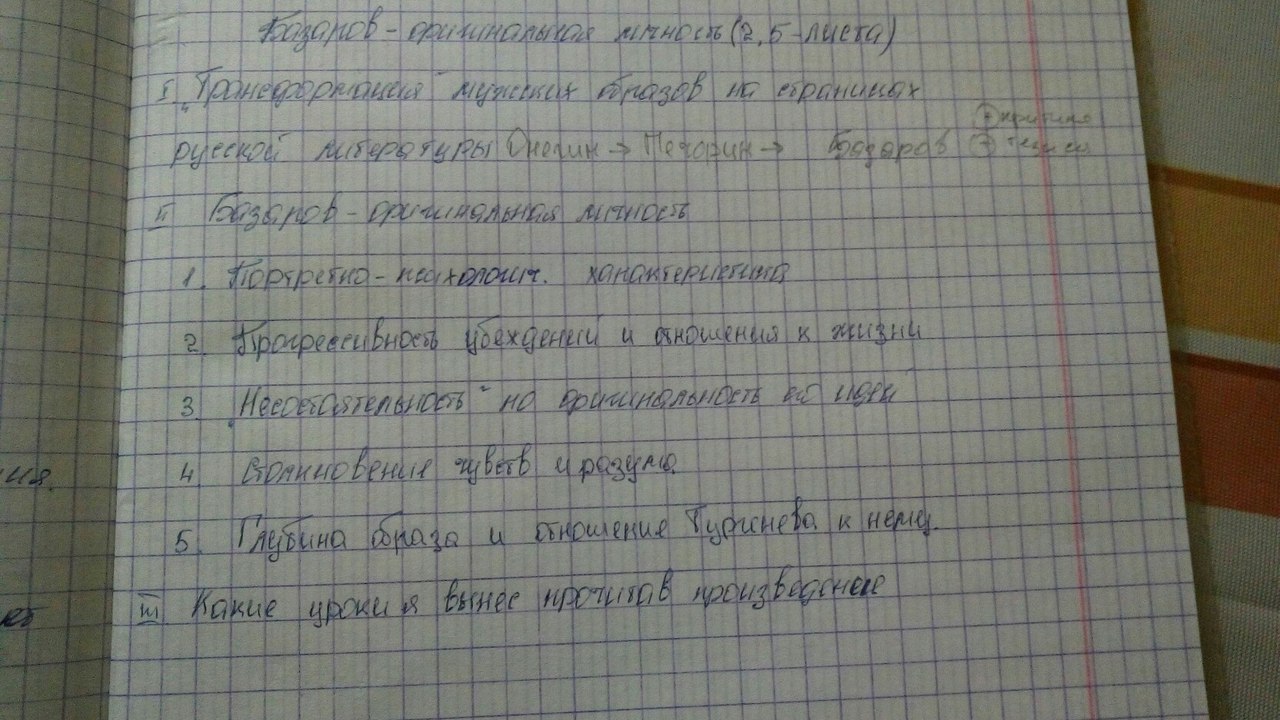 Базаров - оригинальная личность (2,5 - листа)
I "Трансформация" мужских образов на страницах
+ критика
русской литературы Онегин → Печорин → Базаров + тезисы
II Базаров - оригинальная личность
1. Портретно - психологич. характеристика
2. Прогрессивность убеждений и отношения к жизни
3. "Несостоятельность" но оригинальность его идеи
4 Столкновение чувств и разума
5. Глубина образа и отношение Тургенева к нему.
III Какие уроки я вынес прочитав произведение